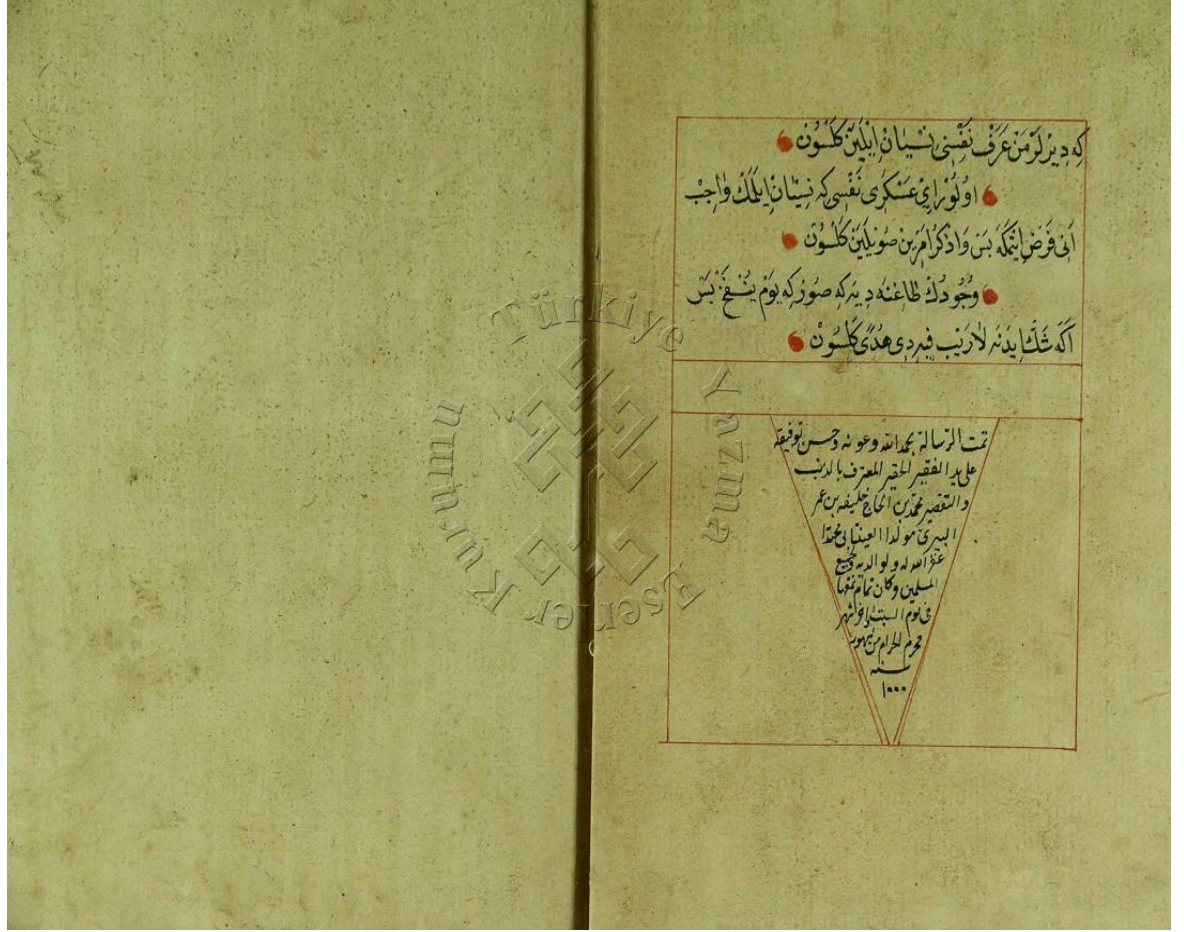 كه ديرلر من عرف نفسنى نسيان ايلين كلسون
اولور اى عسكرى نفسى كه نسيان ايلمك واجب
آنى فرض ايتمكه بس واذكر امرين صويلين كلسون
وجودك طاغنه ديه كه صور كه يوم ينفخ بس
اكه شك ايدنه لا ريب فيه دى هدى كلسون
تمت الرسالة بحمد الله وعونه وحسن توفيقه
على يد الفقير الحقير المعترف بالذنب
والتقصير محمد بن الحاج خليفه بن عمر
البيرى مولدا العينتابى
غفر الله له ولوالديه ولجميع
المسلمين وكان تمام نمقها
فى يوم السبت اواخر شهر
محرم الحرام من شهور
سنه
١٠٠٠
Türkiye Yazma Eserler Kurumu